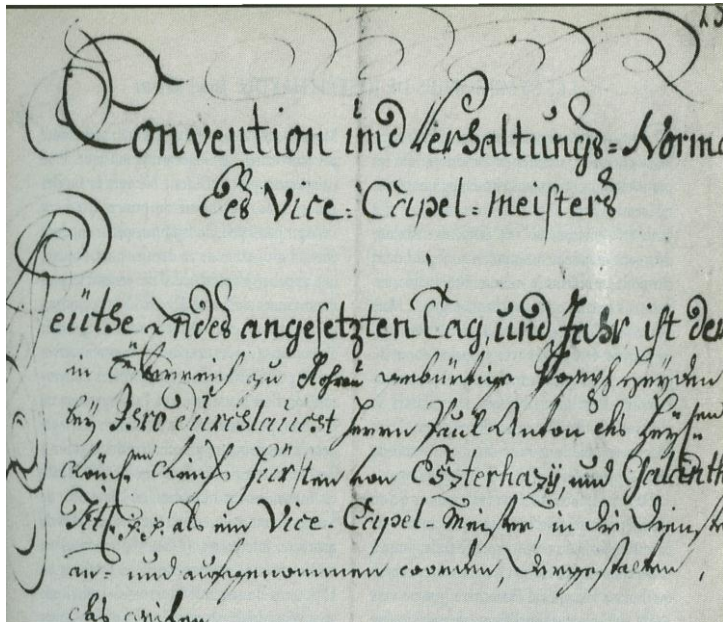 Convention und Verhaltungs=Norma
des Vice=Capel=Meisters
Heüthe Endes angesetzten Tag, und Jahr ist der
in Österreich zu Rohrau gebürtige Joseph Heyden
bey Ihro Durchlaucht Herrn Paul Anton des Heyl:
Röm: Reichs Fürsten von Eszterházÿ, und Galanth
Tit: p.p. als ein Vice-Capel-Meister, in die Dienste
an= und aufgenommen worden, dergestalten,
das